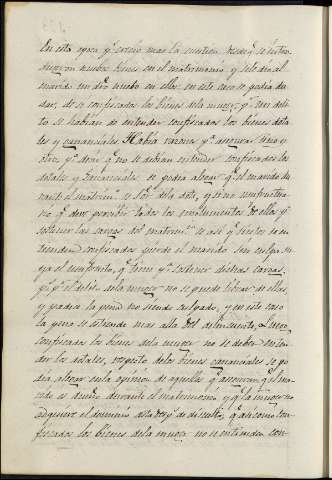 En esta epoca y crecio mas la cuestion desde q.e se intro-
dugeron nuebos bienes en el matrimonio, y se le dio al
marido un dro nuebo en ellos: en este caso se podia du
dar, de si confiscados los bienes de la muger, y p.r un deli-
to se habian de entender confiscados los bienes dota
les y gananciales. Habia razones p.a asegurar uno y
otro: p.a decir q.e no se debian entender confiscados los
dotales y gananciales se podia alegar q.e el marido du
rante el matrim.o es S.or de la dote, y si no usufructua-
rio q.e deve percibir todos los emolumentos de ellos p.a
sostener las cargas del matrim.o: si asi q.e si estos se en-
tienden confiscados pierde el marido sin culpa su
ya el usufructo, q.e tiene p.a sostener dichas cargas,
p.s p.r el delito de la muger no se puede librar de ellas,
y padece la pena no siendo culpado, y en este caso
la pena se estiende mas alla del delincuente. Luego
confiscados los bienes de la muger no se deben enten-
der los dotales, respecto de los bienes gananciales se po
dia, alegar en la opinion de aquellos q.e aseguran q.e el ma-
rido es dueño durante el matrimonio y q.e la muger no
adquiere el dominio hasta desp.s de disuelto, q.e asi como con-
fiscados los bienes de la muger no se entienden con-